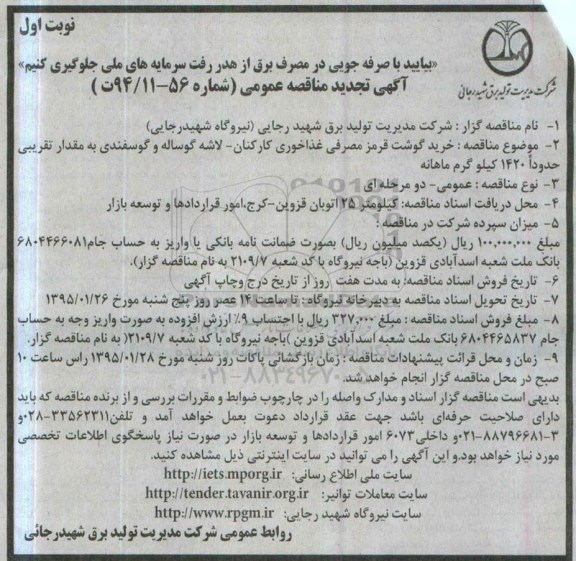 نوبت اول
شرکت مدیریت تولید برق شهید رجائی
«بیایید با صرفه جویی در مصرف برق از هدر رفت سرمایه های ملی جلوگیری کنیم»
آگهی تجدید مناقصه عمومی (شماره ۵۶-۹۴/۱۱ت )
۱- نام مناقصه گزار : شرکت مدیریت تولید برق شهید رجایی (نیروگاه شهیدرجایی)
۲- موضوع مناقصه : خرید گوشت قرمز مصرفی غذاخوری کارکنان- لاشه گوساله و گوسفندی به مقدار تقریبی
حدوداً ۱۴۲۰ کیلو گرم ماهانه
۳- نوع مناقصه : عمومی- دو مرحله ای
۴- محل دریافت اسناد مناقصه: کیلومتر ۲۵ اتوبان قزوین-کرج،امور قراردادها و توسعه بازار
۵- میزان سپرده شرکت در مناقصه :
مبلغ ۱۰۰,۰۰۰,۰۰۰ ریال (یکصد میلیون ریال) بصورت ضمانت نامه بانکی یا واریز به حساب جام۶۸۰۴۴۶۶۰۸۱
بانک ملت شعبه اسدآبادی قزوین (باجه نیروگاه با کد شعبه ۲۱۰۹/۷ به نام مناقصه گزار).
۶- تاریخ فروش اسناد مناقصه: به مدت هفت روز از تاریخ درج وچاپ آگهی
۷- تاریخ تحویل اسناد مناقصه به دبیرخانه نیروگاه : تا ساعت ۱۴ عصر روز پنج شنبه مورخ ۱۳۹۵/۰۱/۲۶
۸- مبلغ فروش اسناد مناقصه : مبلغ ۳۲۷,۰۰۰ ریال با احتساب ۹٪ ارزش افزوده به صورت واریز وجه به حساب
جام ۶۸۰۴۴۶۵۸۳۷ بانک ملت شعبه اسدآبادی قزوین )باجه نیروگاه با کد شعبه ۲۱۰۹/۷( به نام مناقصه گزار.
۹- زمان و محل قرائت پیشنهادات مناقصه : زمان بازگشائی پاکات روز شنبه مورخ ۱۳۹۵/۰۱/۲۸ راس ساعت ۱۰
صبح در محل مناقصه گزار انجام خواهد شد.
بدیهی است مناقصه گزار اسناد و مدارک واصله را در چارچوب ضوابط و مقررات بررسی و از برنده مناقصه که باید
دارای صلاحیت حرفه‌ای باشد جهت عقد قرارداد دعوت بعمل خواهد آمد و تلفن۳۳۵۶۲۳۱۱-۰۲۸و
۳-۸۸۷۹۶۶۸۱-۰۲۱و داخلی۶۰۷۳ امور قراردادها و توسعه بازار در صورت نیاز پاسخگوی اطلاعات تخصصی
مورد نیاز خواهد بود.و این آگهی را می توانید در سایت اینترنتی ذیل مشاهده کنید.
سایت ملی اطلاع رسانی: http://iets.mporg.ir
سایت معاملات توانیر: http://tender.tavanir.org.ir
سایت نیروگاه شهید رجایی: http://www.rpgm.ir
روابط عمومی شرکت مدیریت تولید برق شهیدرجائی
۰۲۱-۸۸۳۴۹۶۷۰